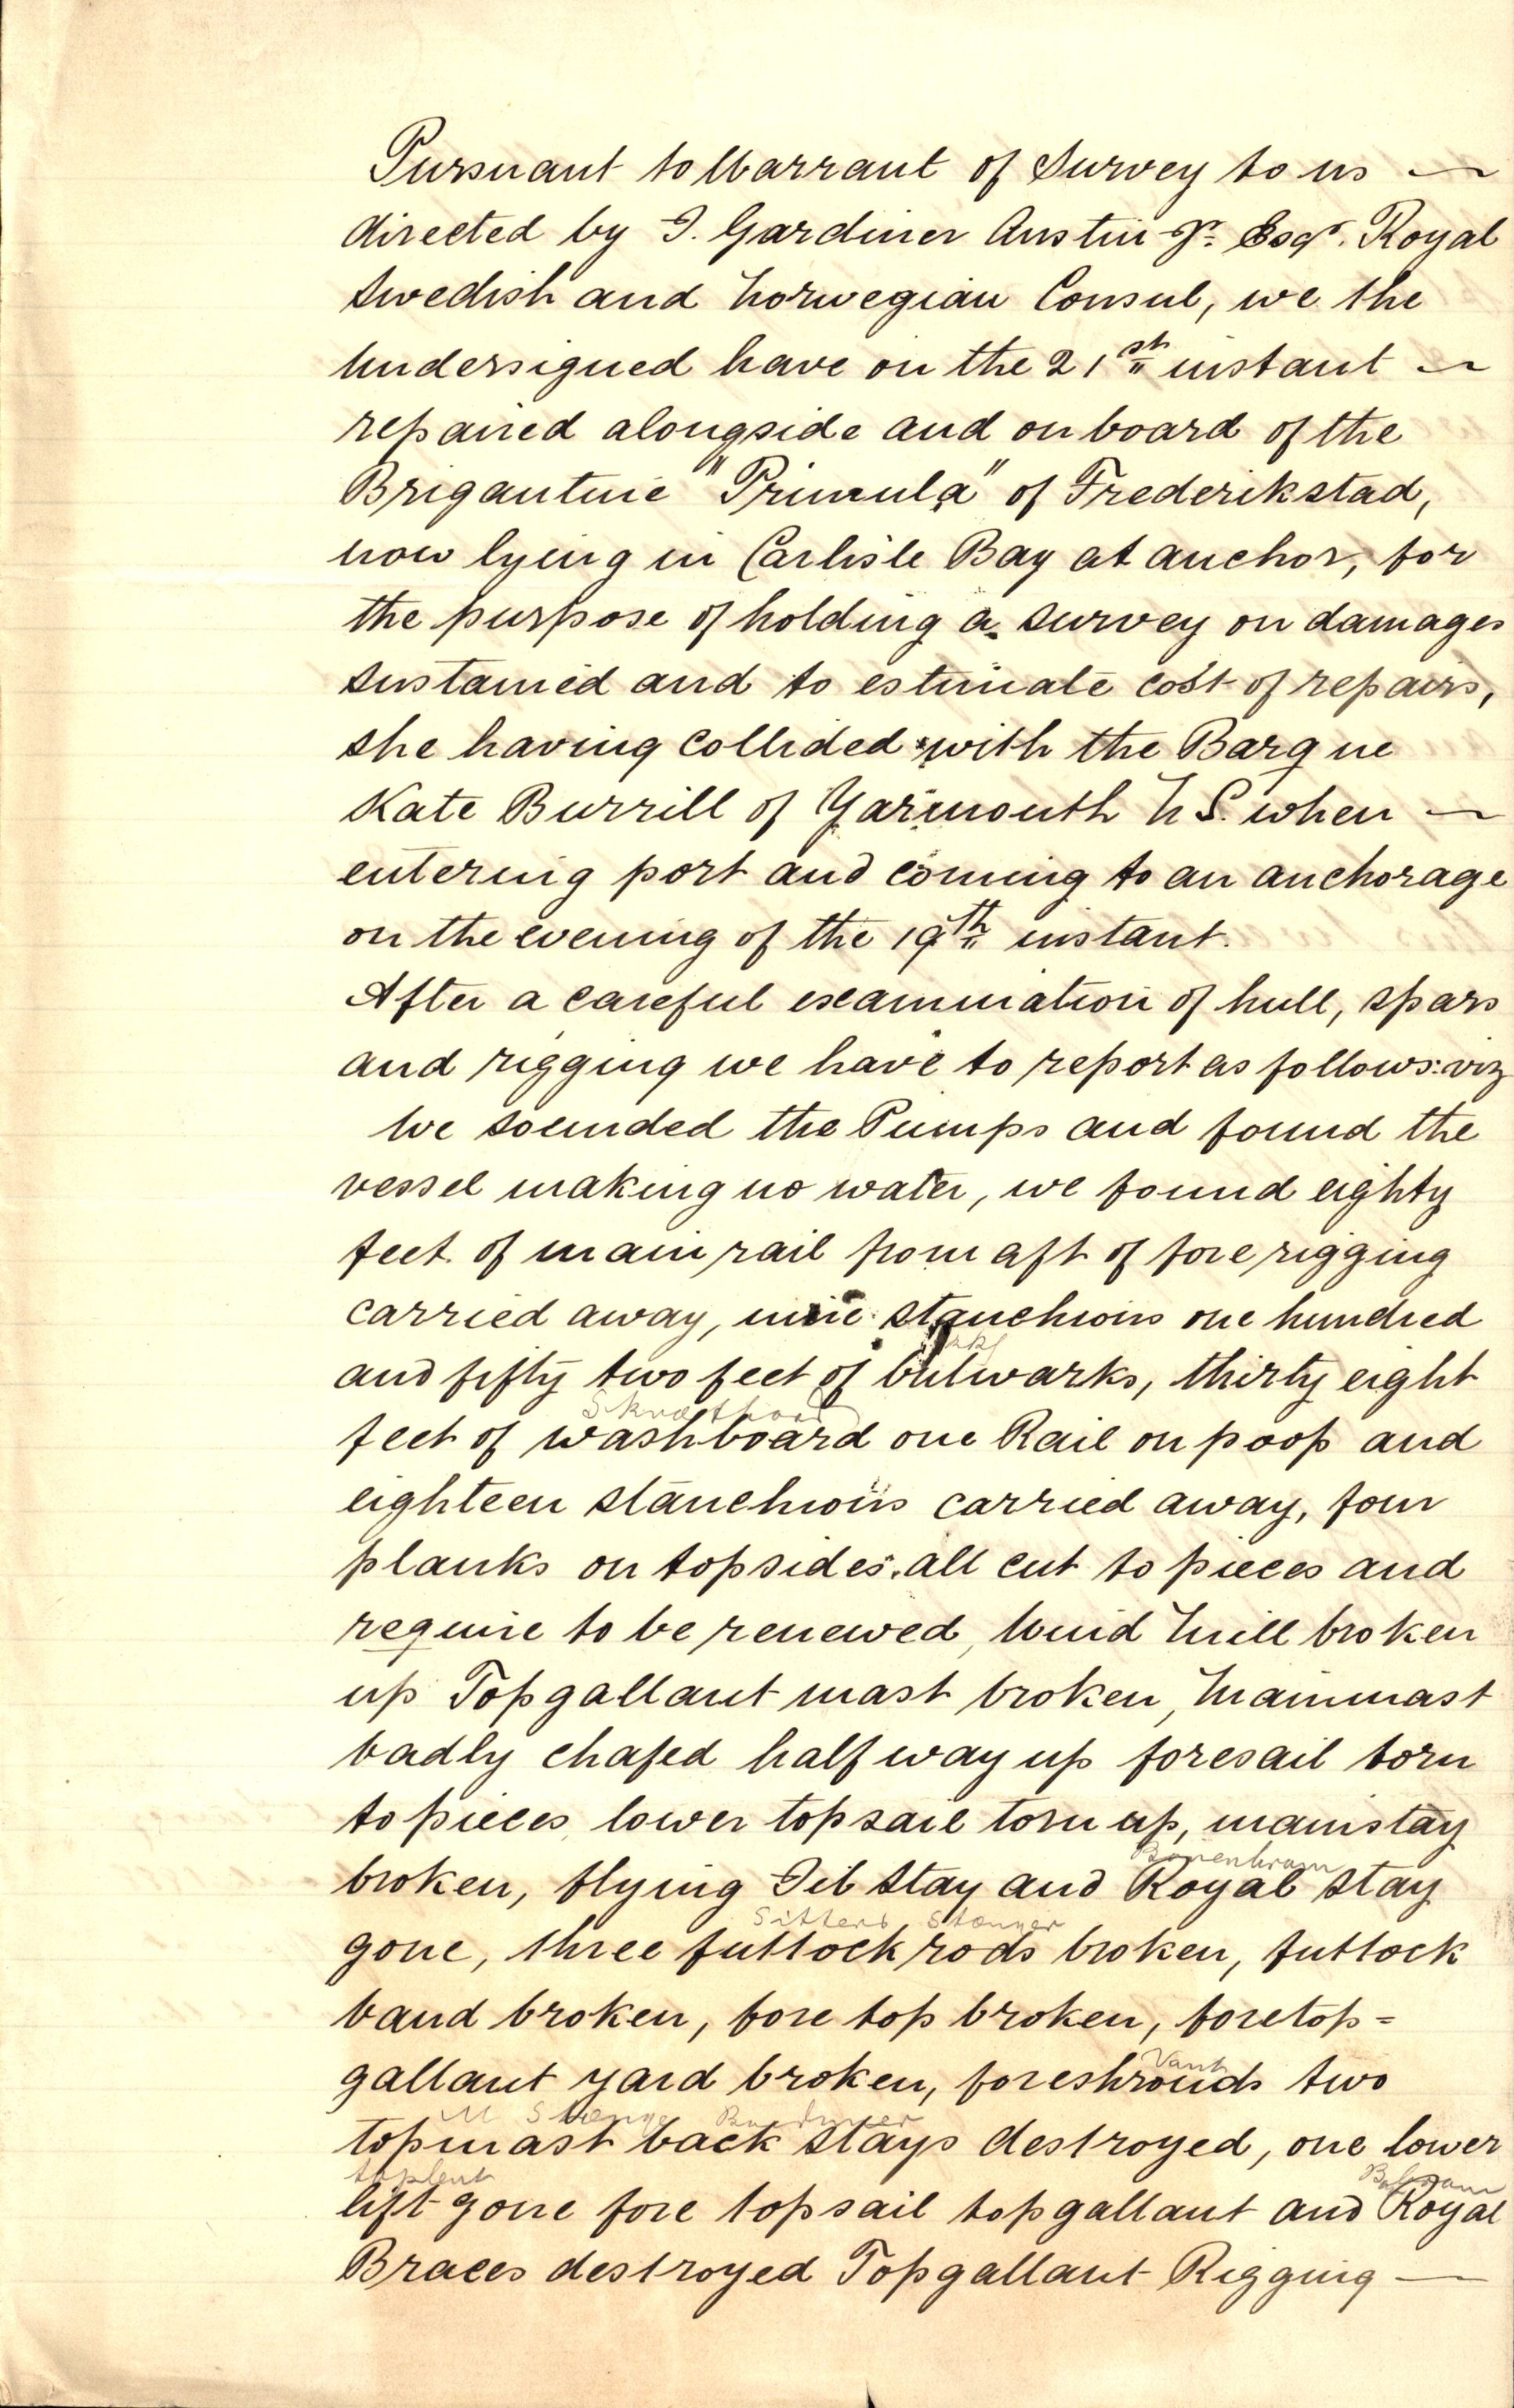 Pursuant to Warrant of Survey to us —
directed by J. Gardiner Austin Jr. Esqr. Royal
Swedish and Norwegian Consul, we the
Undersigned have on the 21st instant —
repaired alongside and on board of the
Brigantine "Primula" of Frederikstad,
now lying in Carlisle Bay at anchor, for
the purpose of holding a survey on damages
sustained and to estimate cost of repairs,
she having collided with the Barque
Kate Burrill of Yarmouth N S. when —
entering port and coming to an anchorage
on the evening of the 19th instant.
After a careful examination of hull, spars
and rigging we have to report as follows: viz
We sounded the Pumps and found the
vessel making no water, we found eighty
feet of main rail from aft of fore rigging
carried away, nine stanchions one hundred
and fifty two feet of bulwarks, thirty eight
feet of washboard one Rail on poop and
eighteen stanchions carried away, four
planks on topsides all cut to pieces and
require to be renewed, Wind Mill broken
up Topgallant mast broken, Mainmast
badly chafed half way up foresail torn
to pieces lower topsail torn up, mainstay
broken, flying Jib Stay and Royal stay
Sitters Stænger
gone, three futtock rods broken, futtock
band broken, fore top broken, foretop=
gallant yard broken, foreshrouds two
Vant
topmast back stays destroyed, one lower
toplent
lift gone fore topsail topgallant and Royal
Braces destroyed Topgallant Rigging —